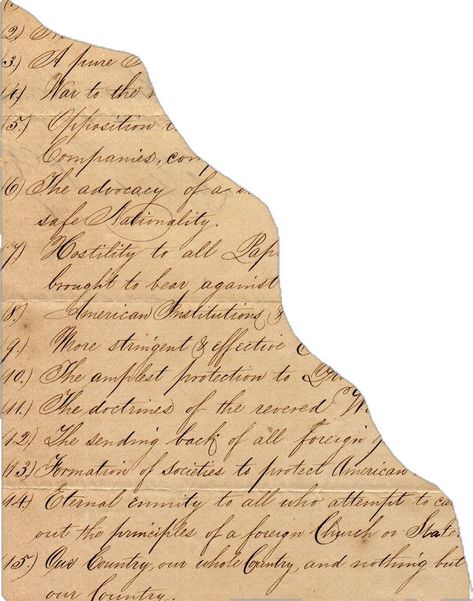 (2)
(3) A pure
(4) War to the
(5.) Opposition
Companies,
(6) The advocacy of a
safe Nationality.
(7) Hostility to all
brought to bear against
(8) American Institutions &
9.) More stringent & effective
10.) The amplest protection to
11.) The doctrines of the revered
12.) The sending back of all foreign
13.) Formation of societies to protect American
14.) Eternal enmity to all who attempt to
out the principles of a foreign Church or State.
15.) Our Country, our whole Country, and nothing but
our Country.